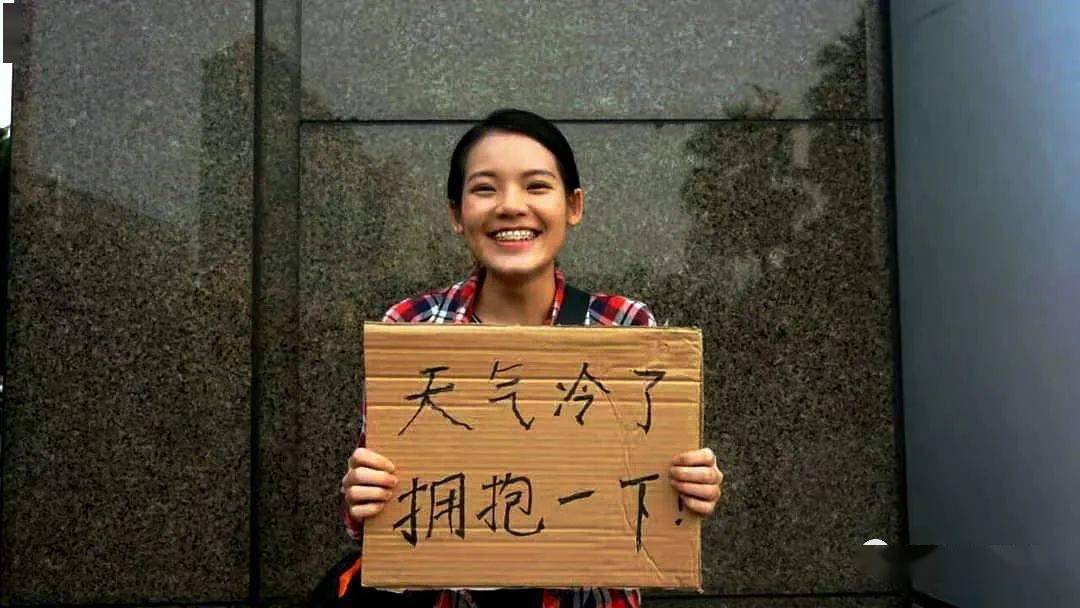 天气冷了
拥抱一下!